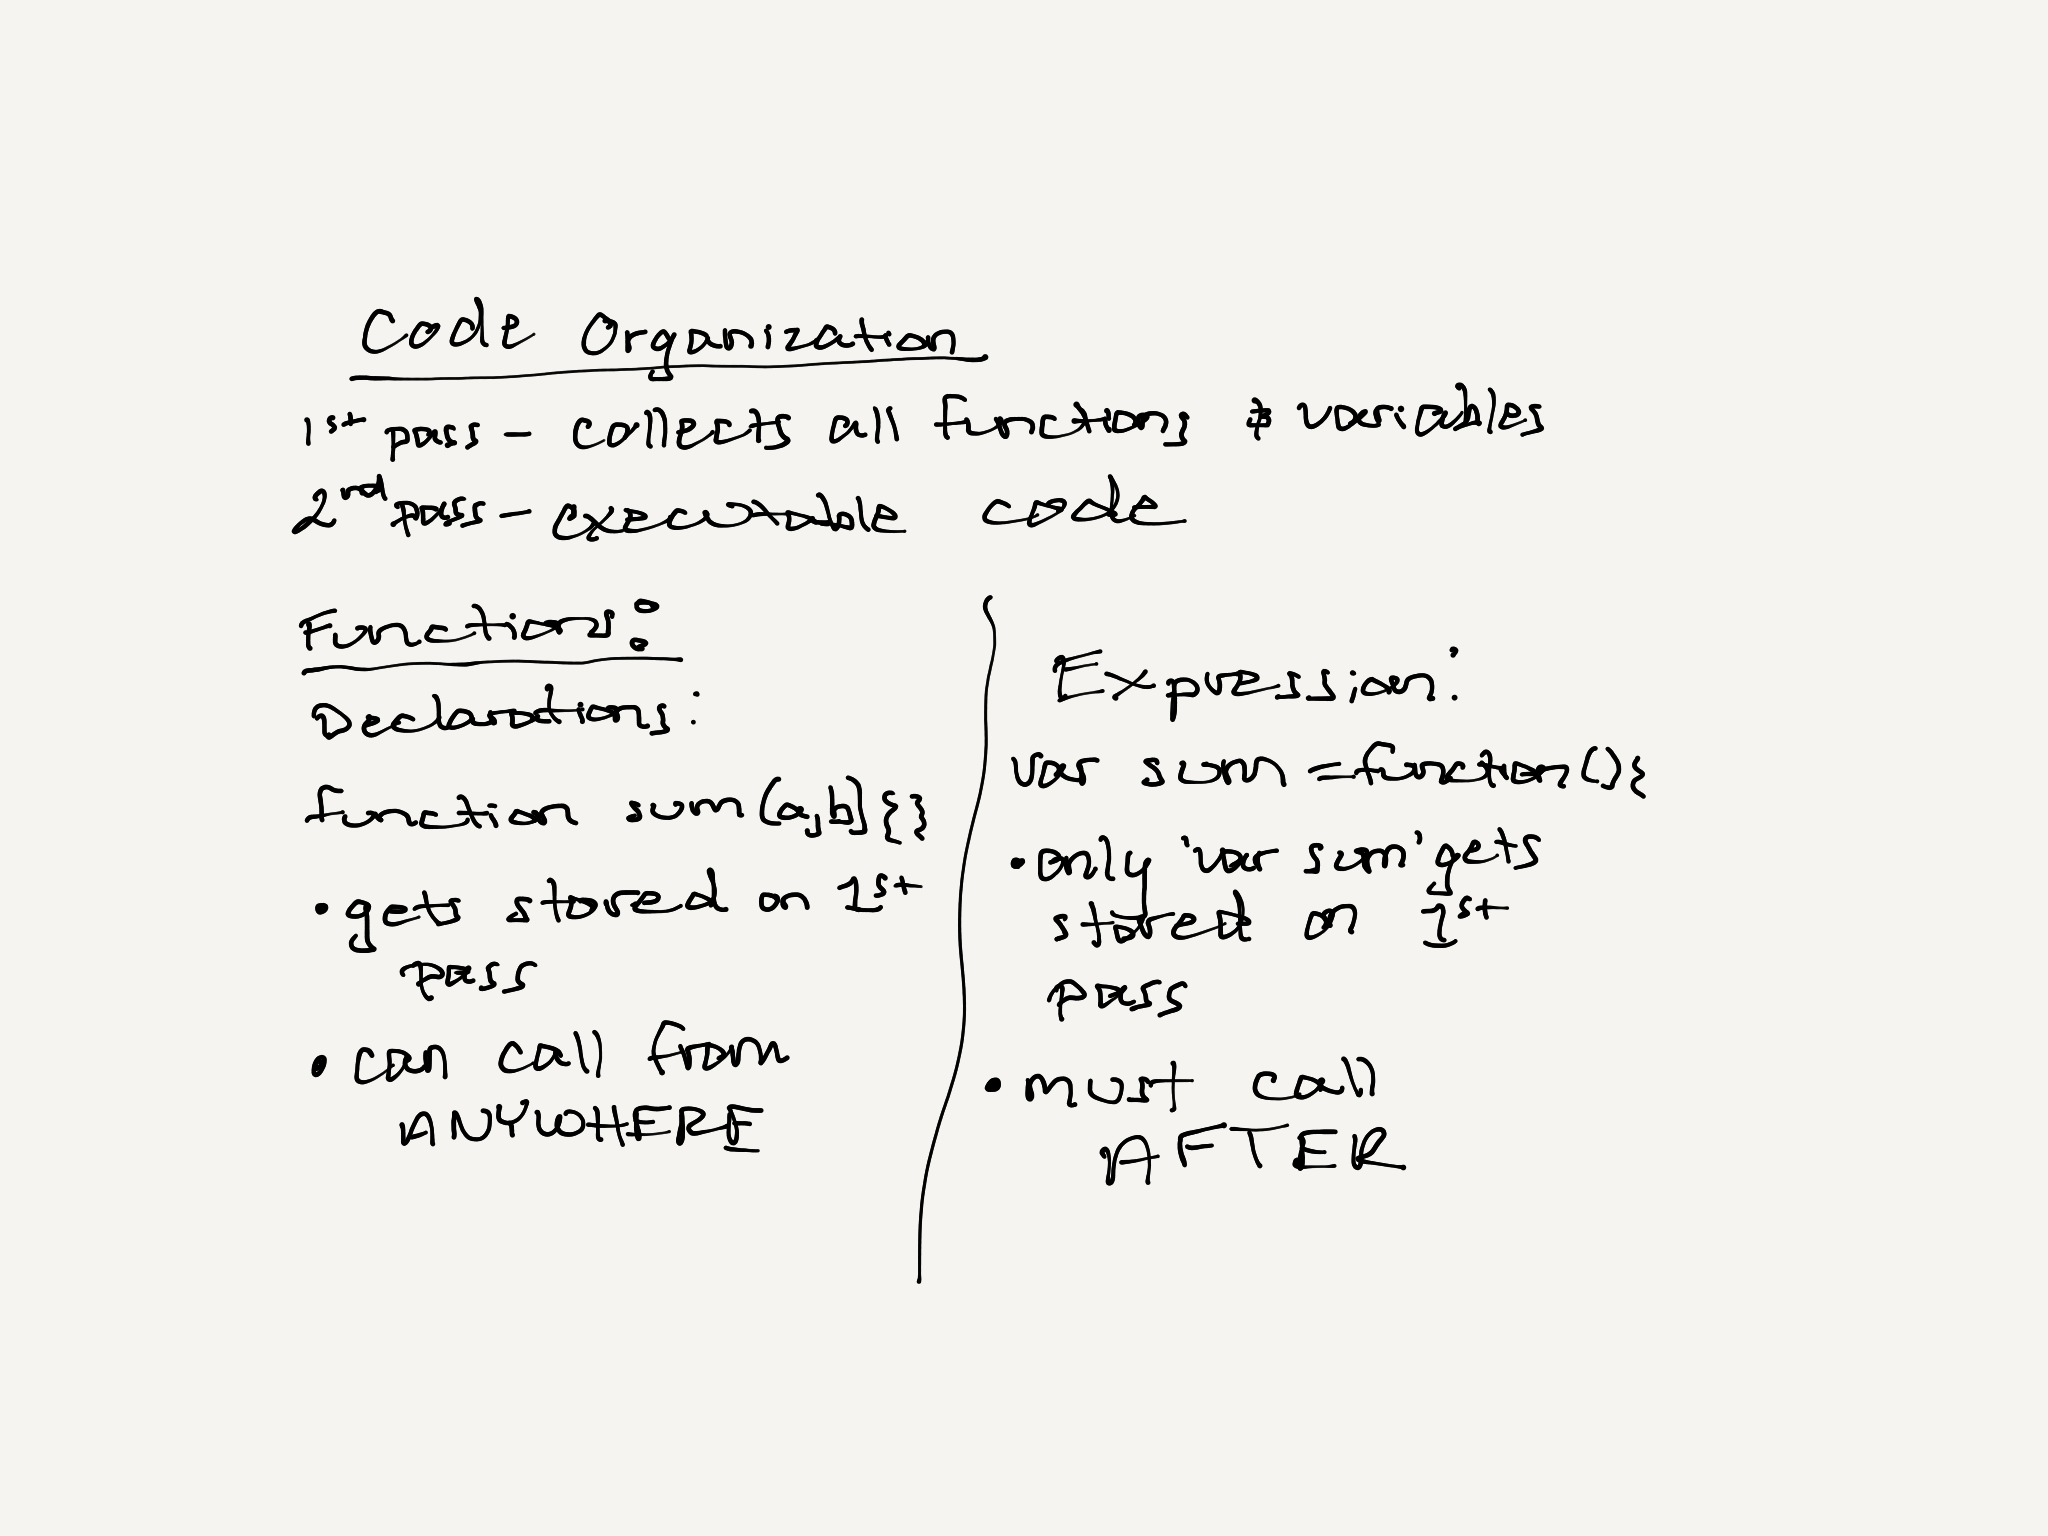 Code Organization
1st pass - collects all functions & variables
2nd pass - executable code
Functions:
Declarations:
function sum(a,b]{}
• gets stored on 1st
pass
• can call from
ANYWHERE
Expression:
var sum = function(){
• only 'var sum' gets
stored on 1st
pass
• must call
AFTER